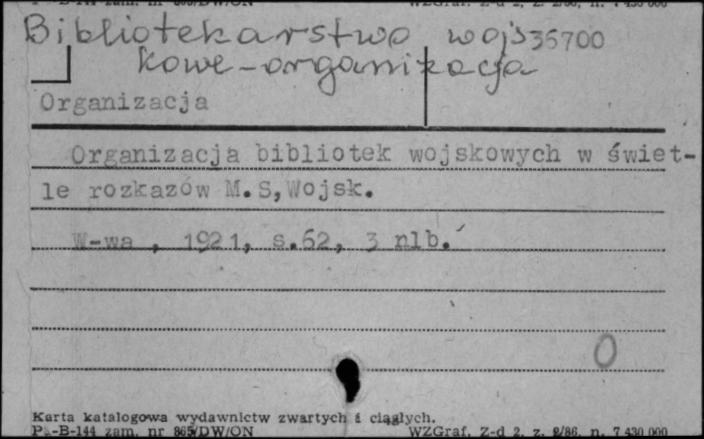 P -B-144 zam. nr 865/DW/ON WZGraf. Z-d 2, z. 2/86, n. 7 430 000
Bibliotekarstwo wojs 35700
kowe-organizacja
Organizacja
Organizacja bibliotek wojskowych w świet-
le rozkazów M.S,Wojsk.
W-wa , 1921, s.62, 3 nlb.
0
Karta katalogowa wydawnictw zwartych i ciągłych.
P.-B-144 zam. nr 865/DW/ON WZGraf. Z-d 2, z. 2/86, n. 7 430 000